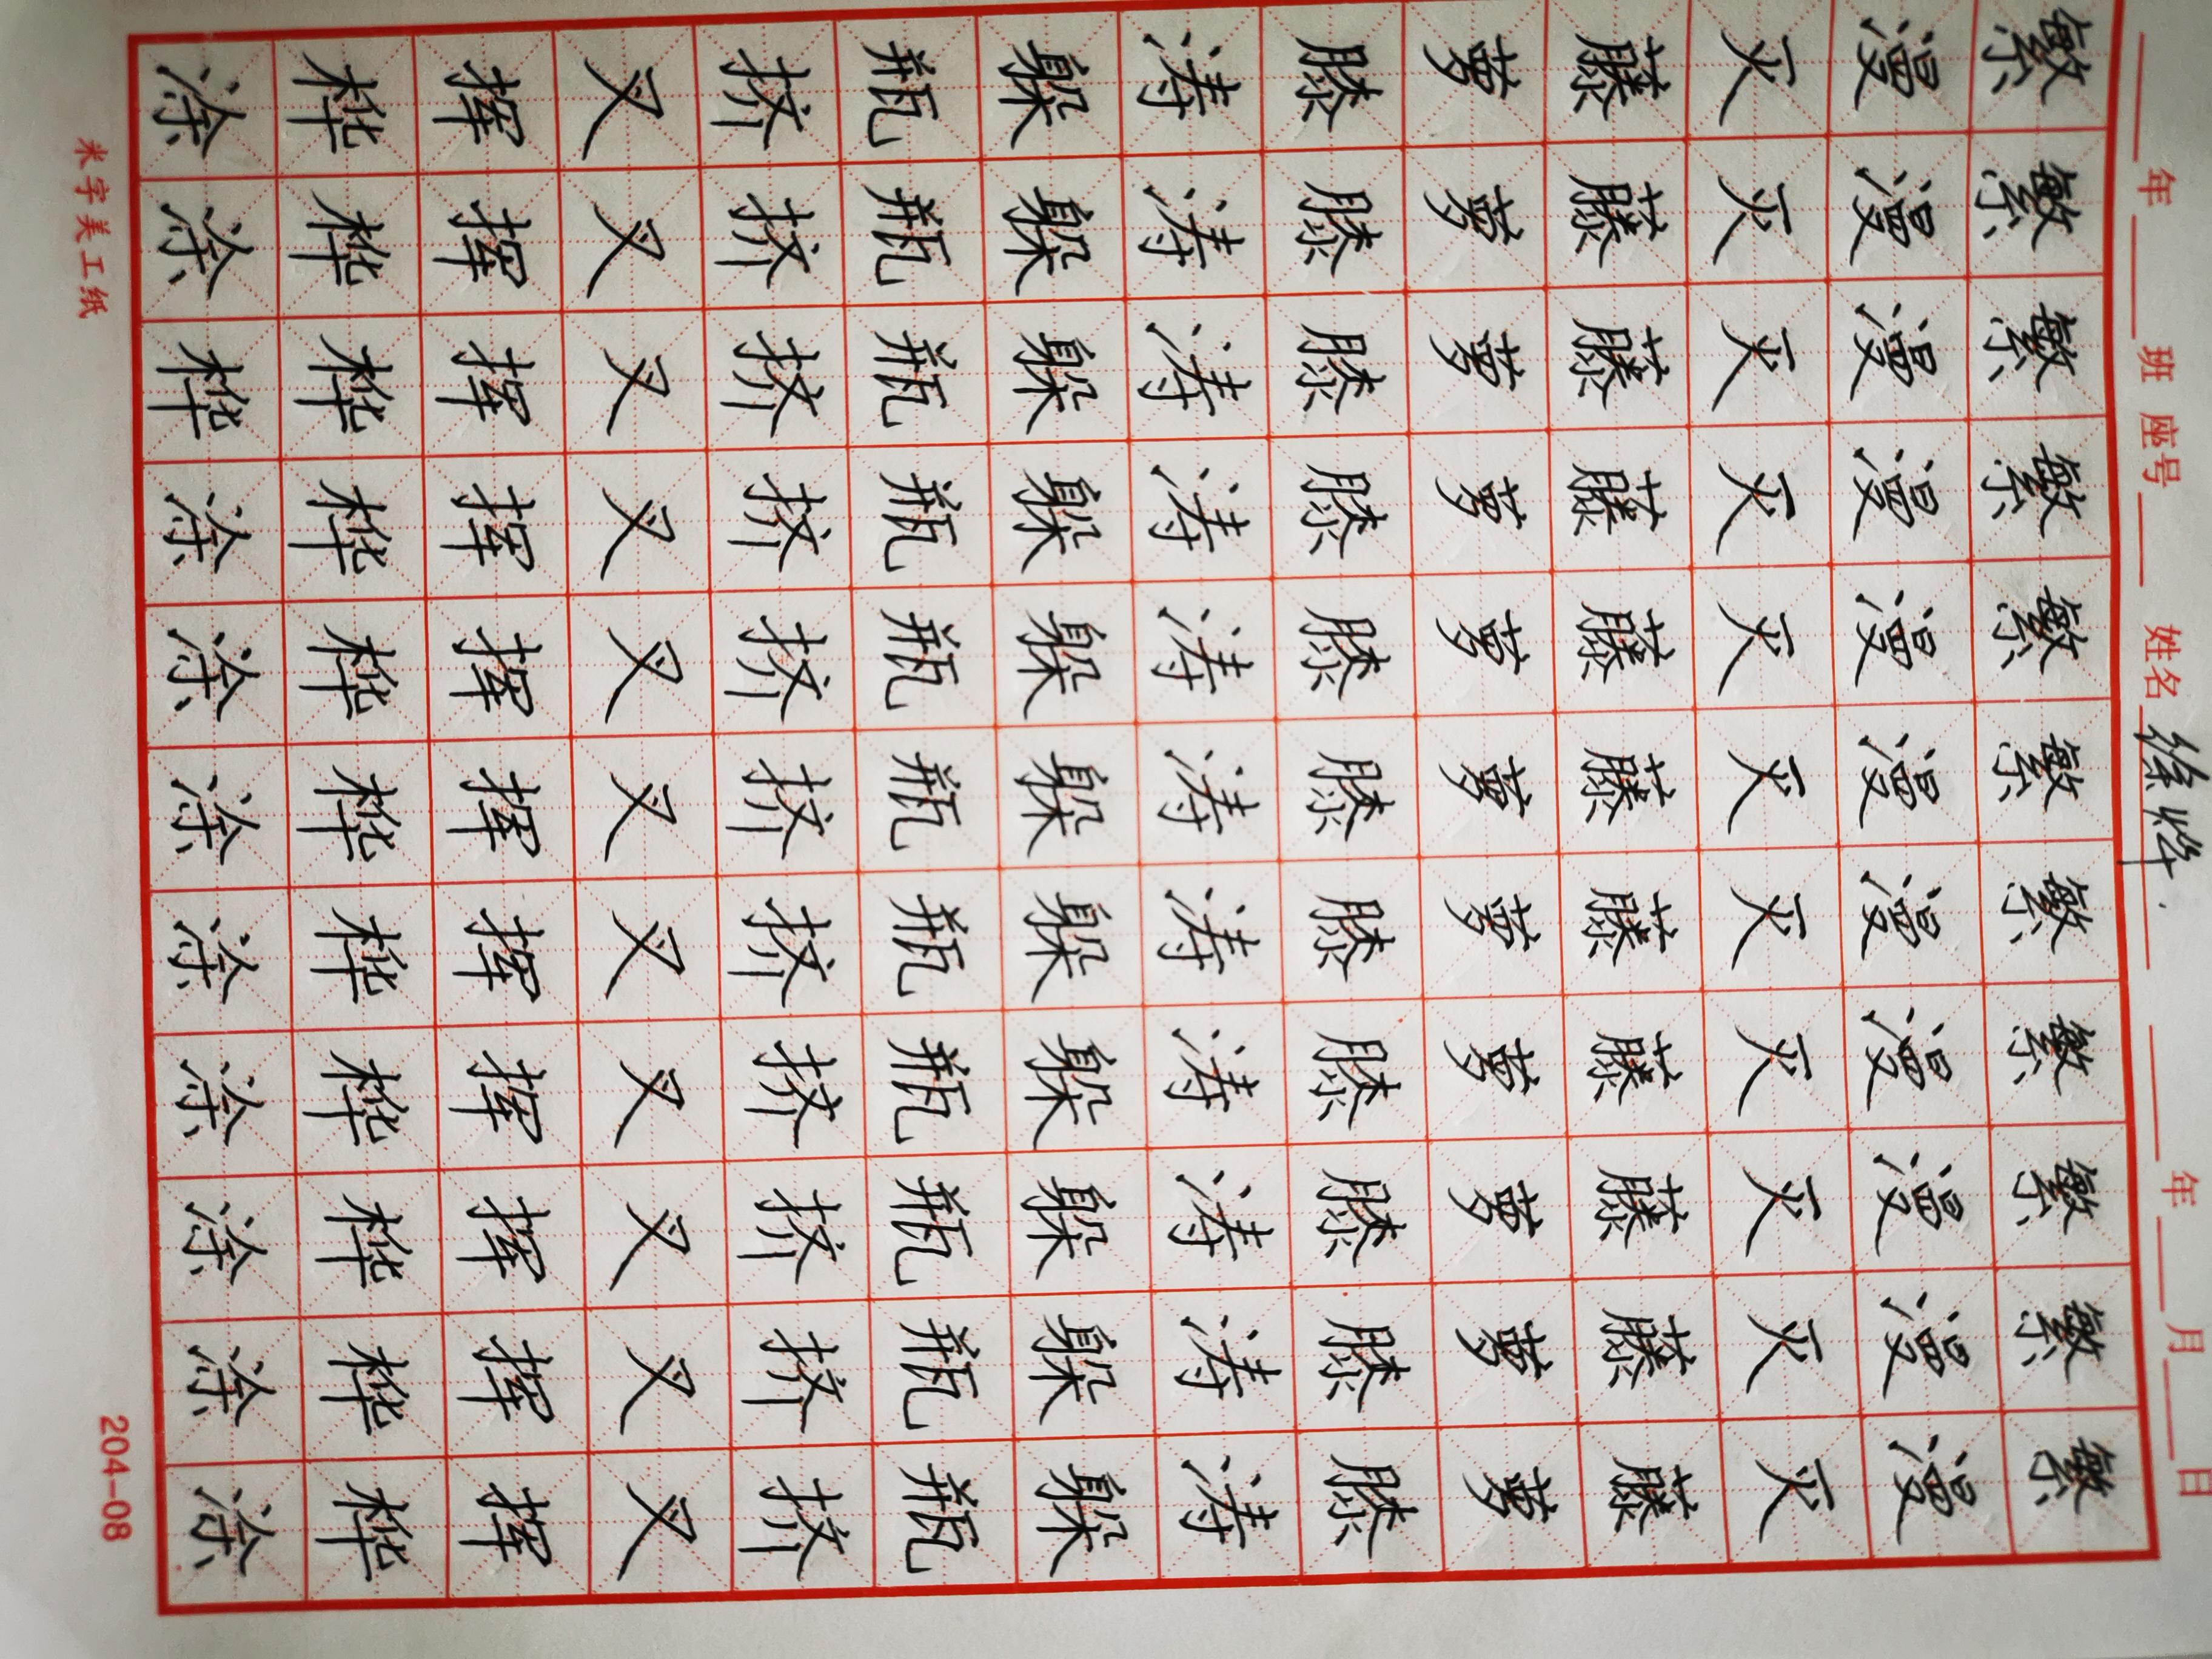 年 班 座号 姓名 徐烨. 年 月 日
繁繁繁繁繁繁繁繁繁繁繁
漫漫漫漫漫漫漫漫漫漫漫
灭灭灭灭灭灭灭灭灭灭灭
藤藤藤藤藤藤藤藤藤藤藤
萝萝萝萝萝萝萝萝萝萝萝
膝膝膝膝膝膝膝膝膝膝膝
涛涛涛涛涛涛涛涛涛涛涛
躲躲躲躲躲躲躲躲躲躲躲
瓶瓶瓶瓶瓶瓶瓶瓶瓶瓶瓶
挤挤挤挤挤挤挤挤挤挤挤
叉叉叉叉叉叉叉叉叉叉叉
挥挥挥挥挥挥挥挥挥挥挥
桦桦桦桦桦桦桦桦桦桦桦
涂涂桦涂涂涂涂涂涂涂涂
米字美工纸 204-08